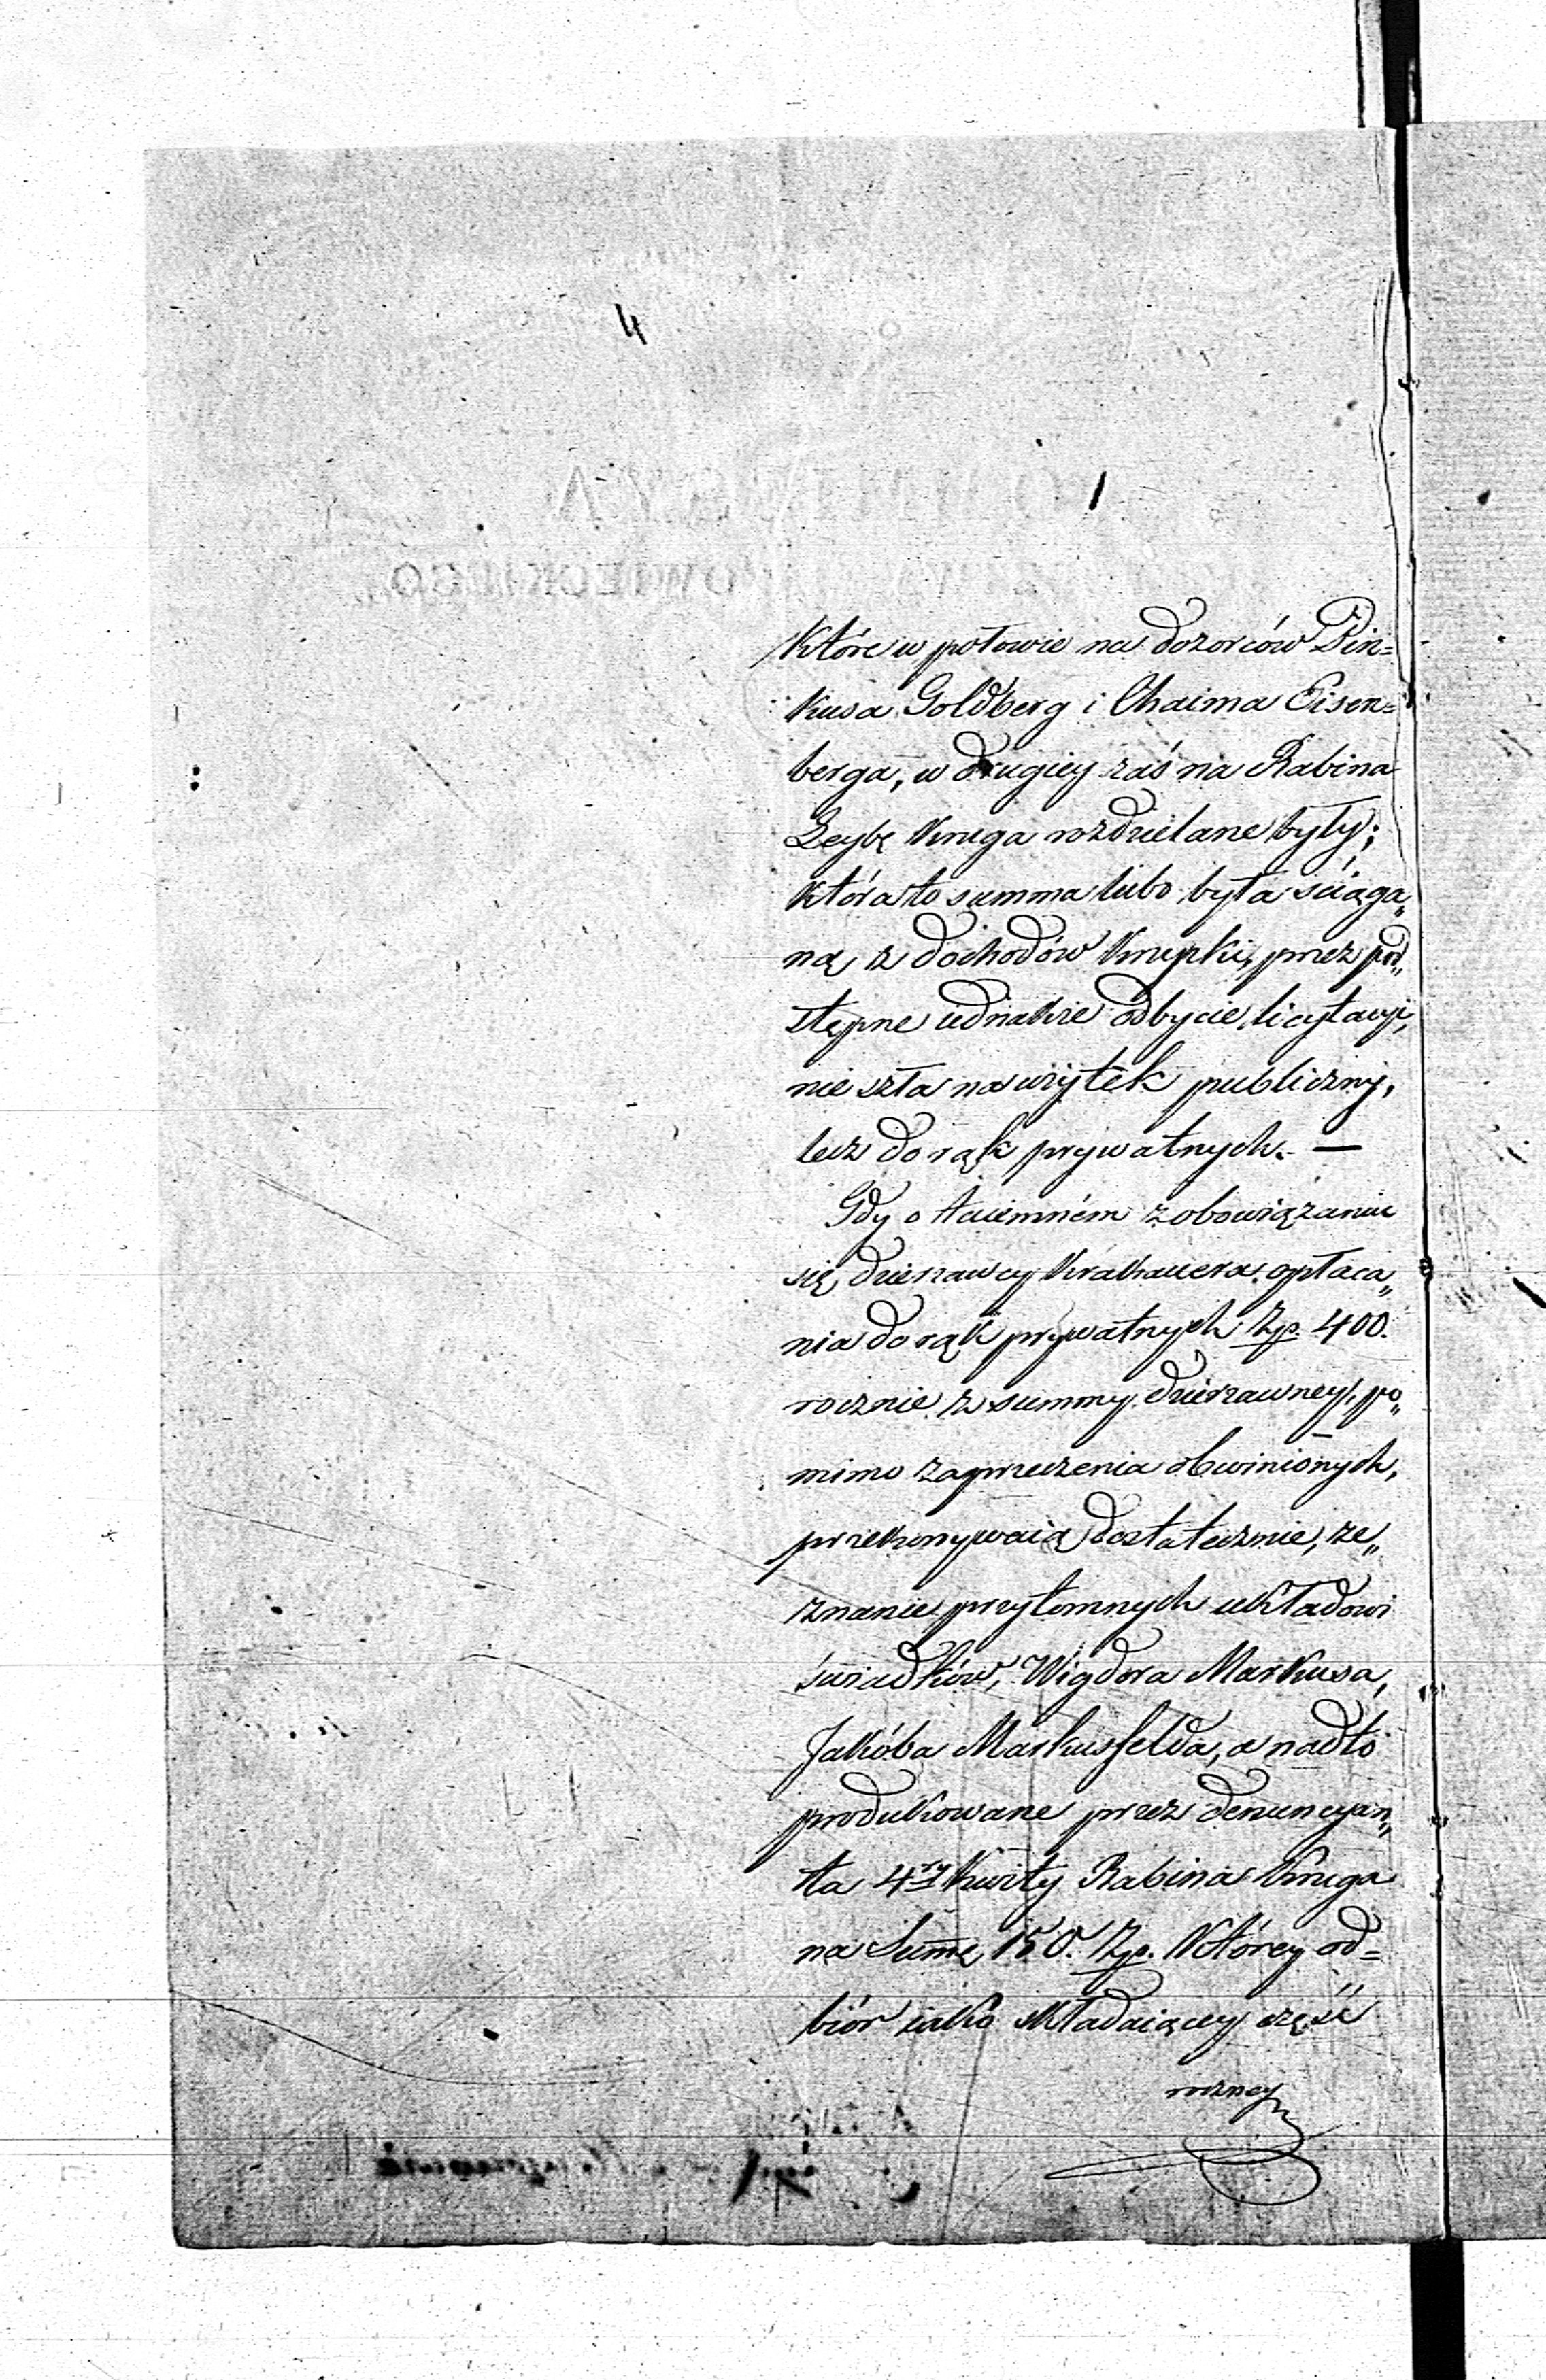 które w połowie na dozorców Pin=
kusa Goldberg i Chaima Eisen=
berga, w drugiey zaś na Rabina
Leybę Kruga rozdzielane były;
która to summa lubo była ściąga„
ną z dochodów Krupki, przez pod„
stępne iednakże odbycie licytacyi,
nie szła na użytek publiczny,
lecz do rąk prywatnych. —
Gdy o taiemném zobowiązaniu
się dzierzawcy Krakauera opłaca„
nia do rąk prywatnych Zp. 400.
rocznie z summy dzierzawney, po„
mimo zaprzeczenia obwinionych,
przekonywaią dostatecznie, ze„
znanie przytomnych układowi
świadków, Wigdora Markusa,
Jakóba Markusfelda, a nadto
produkowane przez denuncyan„
ta 4ry kwity Rabina Kruga
na Sumę 150. Zp. którey od=
biór iako składaiącey część
roczney